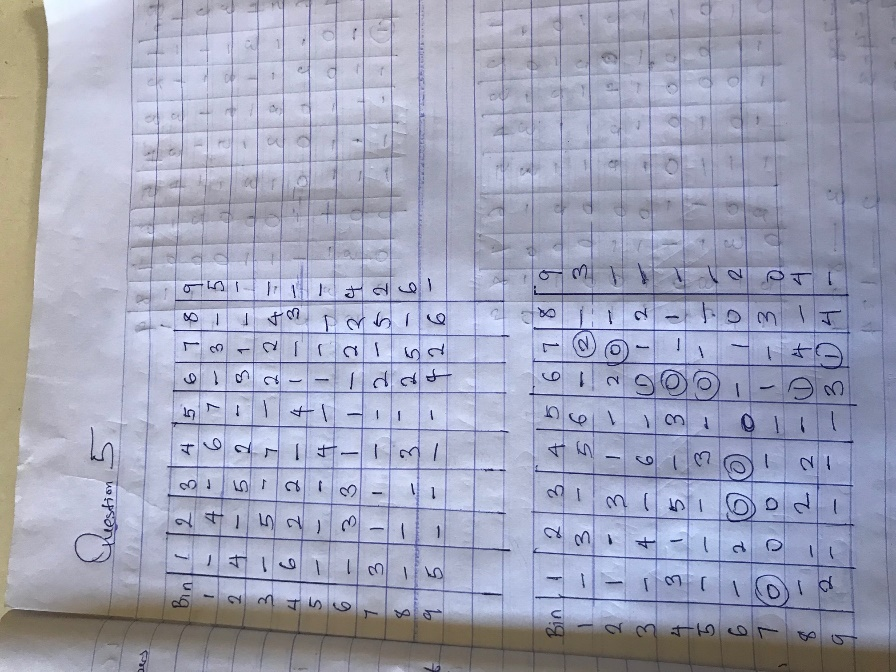 Question 5
Bin 1 2 3 4 5 6 7 8 9
1 - 4 - 6 7 - 3 - 5
2 4 - 5 2 - 3 1 - -
3 - 5 - 7 - 2 2 4 -
4 6 2 2 - 4 1 - 3 -
5 - - - 4 - 1 - - -
6 - 3 3 1 1 - 2 2 4
7 3 1 1 - - 2 - 5 2
8 - - - 3 - 2 5 - 6
9 5 - - - - 4 2 6 -
Bin 1 2 3 4 5 6 7 8 9
1 - 3 - 5 6 - 2 - 3
2 1 - 3 1 - 2 0 - -
3 - 4 - 6 - 1 1 2 -
4 3 1 5 - 3 0 - 1 -
5 - - - 3 - 0 - - -
6 - 2 0 0 0 - 1 0 2
7 0 0 0 - - 1 - 3 0
8 - - 2 2 - 1 4 - 4
9 2 - - - - 3 1 4 -